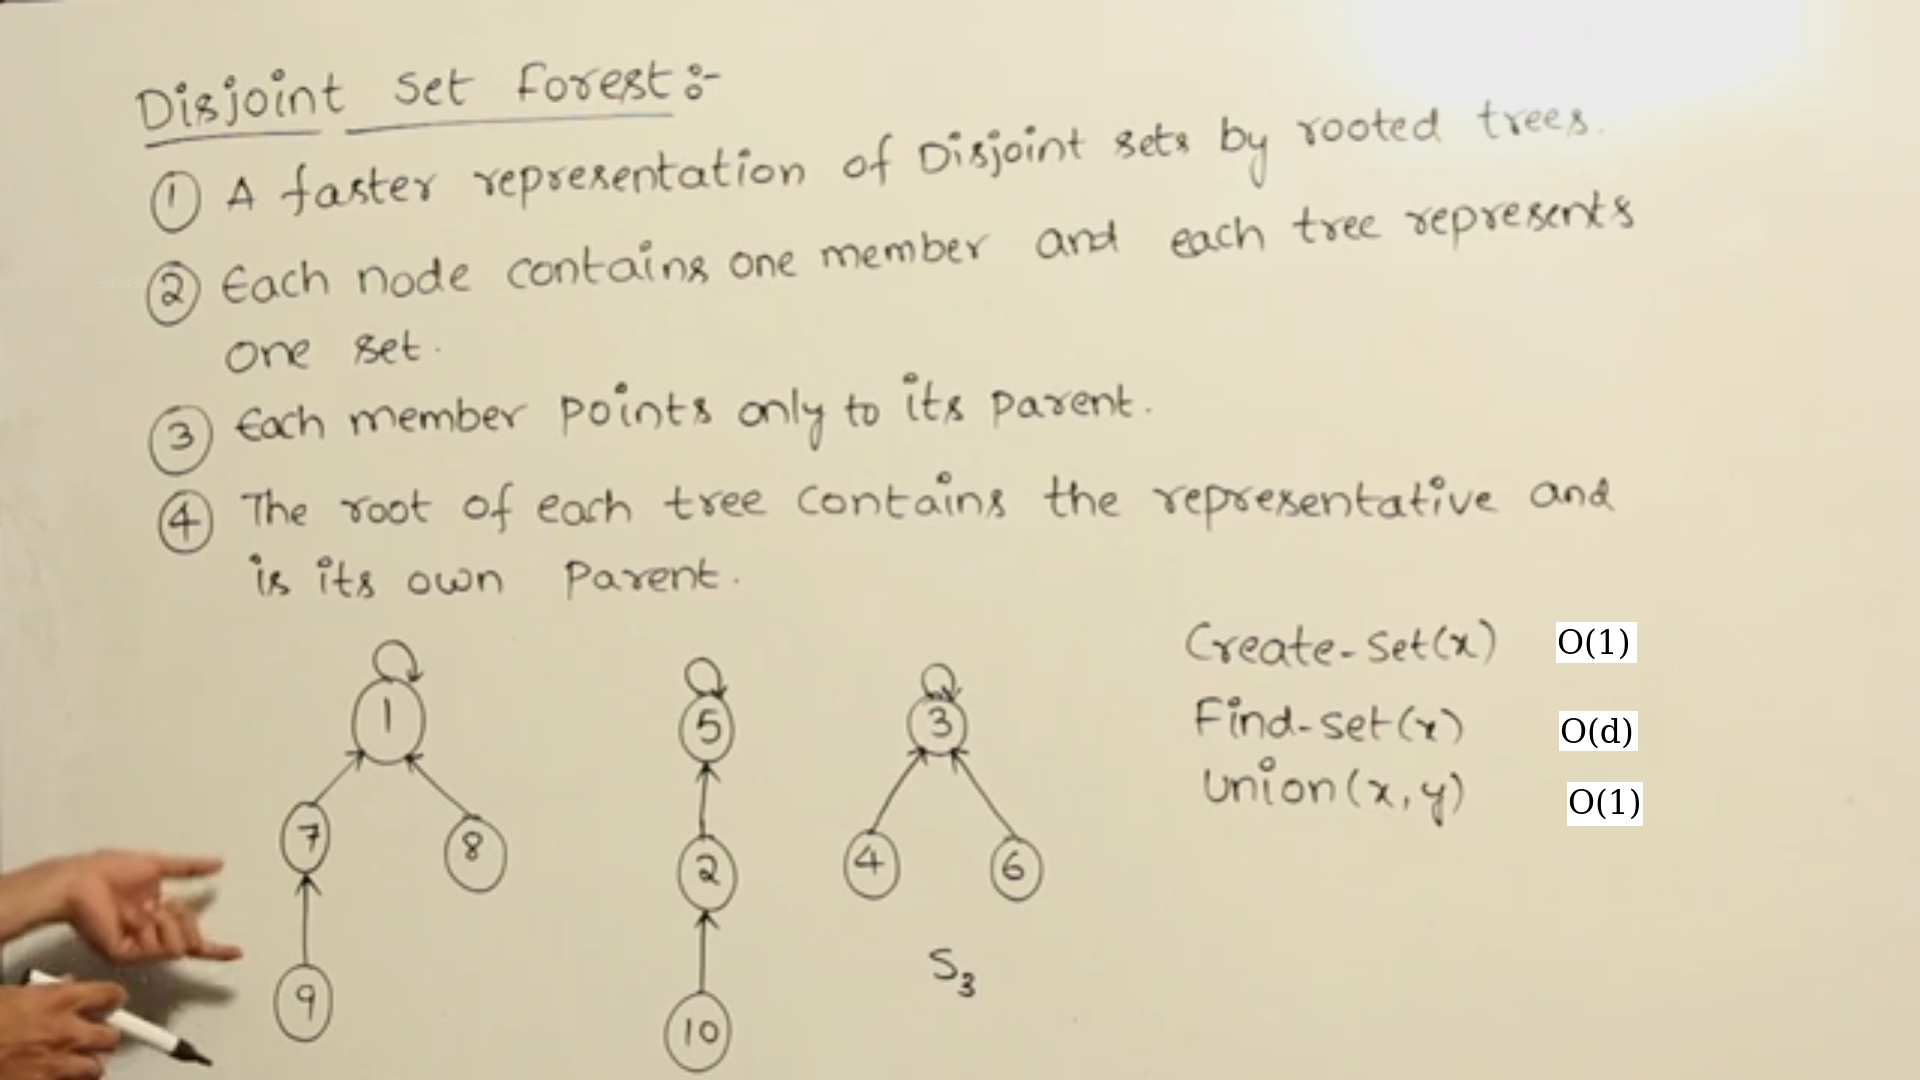 Disjoint Set Forest:-
① A faster representation of Disjoint sets by rooted trees.
② Each node contains one member and each tree represents
one set.
③ Each member points only to its parent.
④ The root of each tree contains the representative and
is its own Parent.
Create-Set(x) O(1)
Find-set(x) O(d)
Union(x,y) O(1)
1
5
3
7
8
2
4
6
9
10
S3